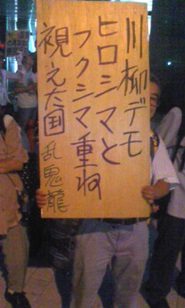 川柳デモ
ヒロシマと
フクシマ重ね
視えた国 乱鬼龍